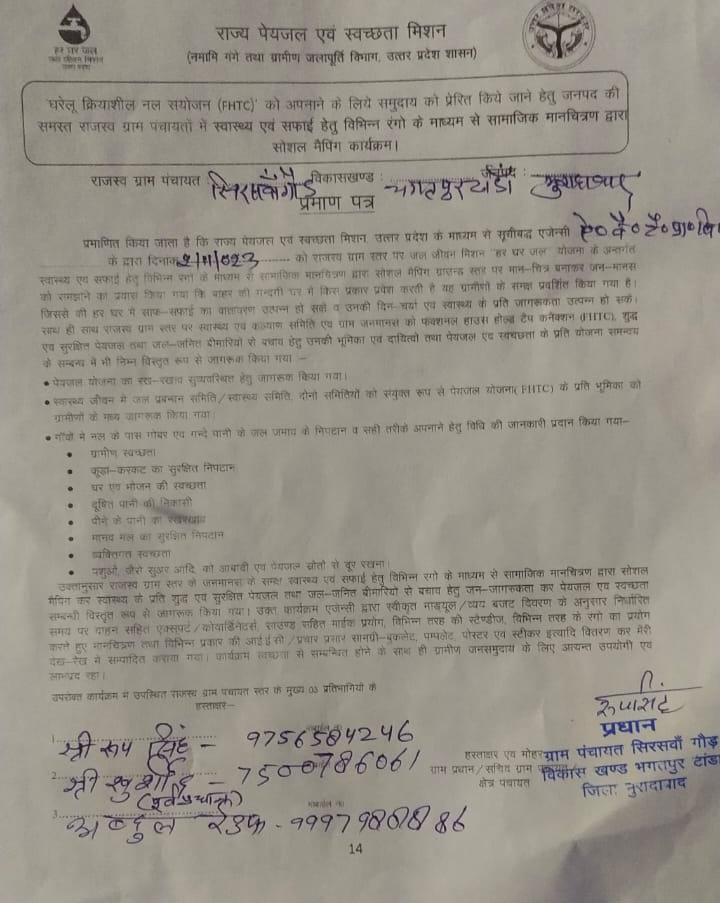 हर घर जल
जल जीवन मिशन
राज्य पेयजल एवं स्वच्छता मिशन
(नमामि गंगे तथा ग्रामीण जलापूर्ति विभाग, उत्तर प्रदेश शासन)
'घरेलू क्रियाशील नल संयोजन (FHTC)' को अपनाने के लिये समुदाय को प्रेरित किये जाने हेतु जनपद की
समस्त राजस्व ग्राम पंचायतों में स्वास्थ्य एवं सफाई हेतु विभिन्न रंगो के माध्यम से सामाजिक मानचित्रण द्वारा
सोशल मैपिंग कार्यक्रम।
राजस्व ग्राम पंचायत सिरसवाँ गौड़ विकासखण्ड : भगतपुर टांडा जनपद : मुरादाबाद
प्रमाण पत्र
प्रमाणित किया जाता है कि राज्य पेयजल एवं स्वच्छता मिशन, उत्तर प्रदेश के माध्यम से सूचीबद्ध एजेन्सी
के द्वारा दिनांक ........ को राजस्व ग्राम स्तर पर जल जीवन मिशन "हर घर जल" योजना के अन्तर्गत
स्वास्थ्य एवं सफाई हेतु विभिन्न रंगों के माध्यम से सामाजिक मानचित्रण द्वारा सोशल मैपिंग ग्राउण्ड स्तर पर मान-चित्र बनाकर जन-मानस
को समझाने का प्रयास किया गया कि बाहर की गन्दगी घर में किस प्रकार प्रवेश करती है यह ग्रामीणों के समक्ष प्रदर्शित किया गया है।
जिससे की हर घर में साफ-सफाई का वातावरण उत्पन्न हो सके व उनकी दिन-चर्या एवं स्वास्थ्य के प्रति जागरूकता उत्पन्न हो सके।
साथ ही साथ राजस्व ग्राम स्तर पर स्वास्थ्य एवं कल्याण समिति एवं ग्राम जनमानस को फंक्शनल हाउस होल्ड टैप कनेक्शन (FHTC), शुद्ध
एवं सुरक्षित पेयजल तथा जल-जनित बीमारियों से बचाव हेतु उनकी भूमिका एवं दायित्वों तथा पेयजल एंव स्वच्छता के प्रति योजना समन्वय
के सम्बन्ध में भी निम्न विस्तृत रूप से जागरूक किया गया –
• पेयजल योजना का रख-रखाव सुव्यवस्थित हेतु जागरूक किया गया।
• स्वास्थ्य जीवन में जल प्रबन्धन समिति/स्वास्थ्य समिति, दोनो समितियों को संयुक्त रूप से पेयजल योजना(FHTC) के प्रति भूमिका को
ग्रामीणों के मध्य जागरूक किया गया।
• गाँवों में नल के पास गोबर एवं गन्दे पानी के जल जमाव के निपटान व सही तरीके अपनाने हेतु विधि की जानकारी प्रदान किया गया–
• ग्रामीण स्वच्छता
• कूड़ा-करकट का सुरक्षित निपटान
• घर एवं भोजन की स्वच्छता
• दूषित पानी की निकासी
• पीने के पानी का रखरखाव
• मानव मल का सुरक्षित निपटान
• व्यक्तिगत स्वच्छता
• पशुओं, जैसे सुअर आदि, को आबादी एवं पेयजल स्रोतों से दूर रखना।
उक्तानुसार राजस्व ग्राम स्तर के जनमानस के समक्ष स्वास्थ्य एवं सफाई हेतु विभिन्न रंगो के माध्यम से सामाजिक मानचित्रण द्वारा सोशल
मैपिंग कर स्वास्थ्य के प्रति शुद्ध एवं सुरक्षित पेयजल तथा जल-जनित बीमारियों से बचाव हेतु जन-जागरूकता कर पेयजल एवं स्वच्छता
सम्बन्धी विस्तृत रूप से जागरूक किया गया। उक्त कार्यक्रम एजेन्सी द्वारा स्वीकृत माड्यूल/व्यय बजट विवरण के अनुसार निर्धारित
समय पर वाहन सहित एक्सपर्ट/कोवार्डिनेटर्स, साउण्ड सहित माईक प्रयोग, विभिन्न तरह की स्टैण्डीज, विभिन्न तरह के रंगो का प्रयोग
करते हुए मानचित्रण तथा विभिन्न प्रकार की आई.ई.सी./प्रचार प्रसार सामग्री-बुकलेट, पम्पलेट, पोस्टर एवं स्टीकर इत्यादि वितरण कर मेरी
देख-रेख में सम्पादित कराया गया। कार्यक्रम स्वच्छता से सम्बन्धित होने के साथ ही ग्रामीण जनसमुदाय के लिए अत्यन्त उपयोगी एवं
लाभप्रद रहा।
उपरोक्त कार्यक्रम में उपस्थित राजस्व ग्राम पंचायत स्तर के मुख्य 03 प्रतिभागियों के
हस्ताक्षर–
1. श्री रूप सिंह – 9756584246
2. श्री खुर्शीद – 7500786061
(पूर्व प्रधान)
3. अब्दुल रऊफ -
मोबाईल नं0
रूपसिंह
प्रधान
ग्राम पंचायत सिरसवाँ गौड़
विकास खण्ड भगतपुर टांडा
जिला मुरादाबाद
हस्ताक्षर एवं मोहर
ग्राम प्रधान/सचिव ग्राम पंचायत/
क्षेत्र पंचायत
14